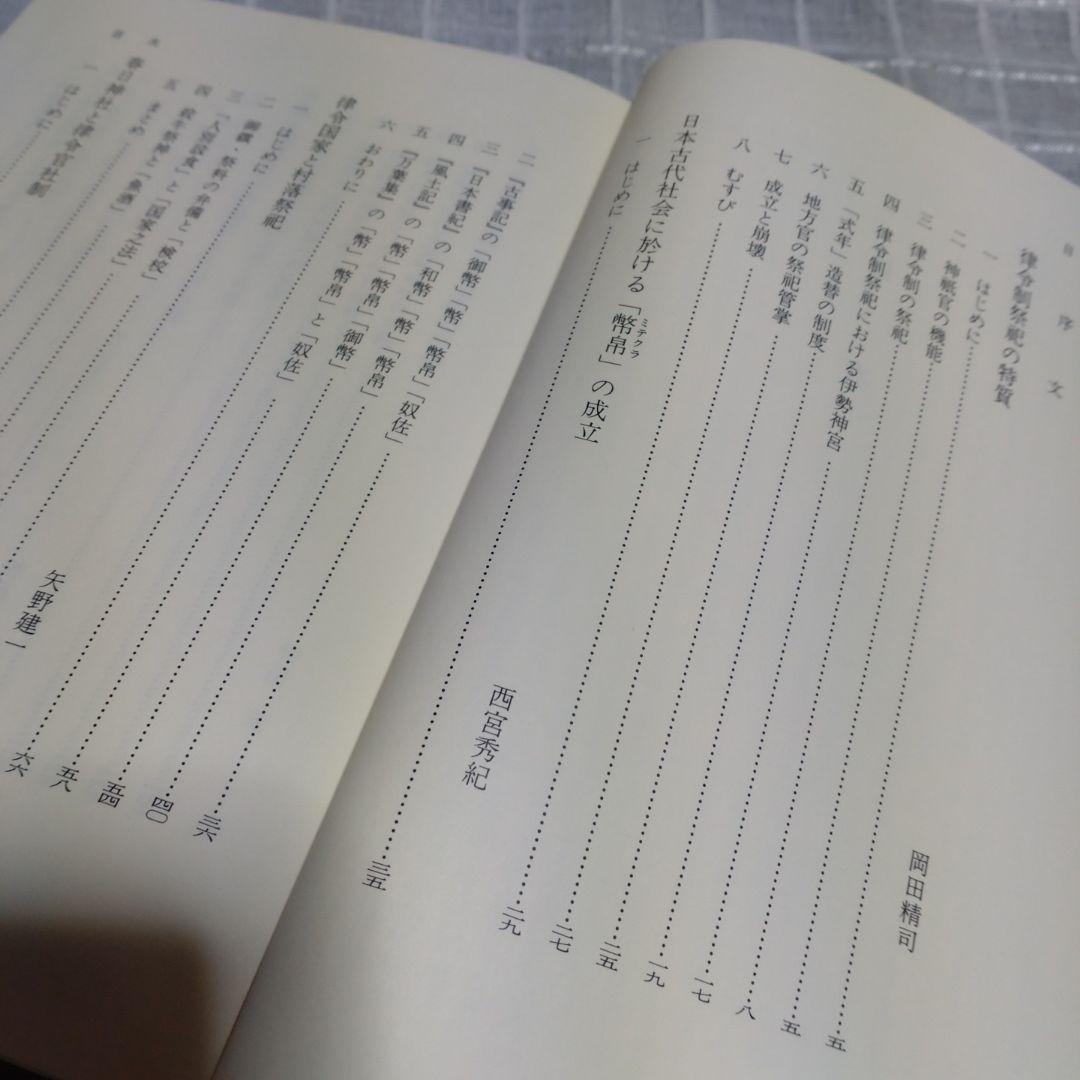 目
序文
律令制祭祀の特質 岡田精司
一 はじめに 五
二 神祇官の機能 五
三 律令制の祭祀 八
四 律令制祭祀における伊勢神宮 一七
五 「式年」造替の制度 一九
六 地方官の祭祀管掌 二五
七 成立と崩壊 二七
八 むすび 二九
日本古代社会に於ける「幣帛」の成立 西宮秀紀
ミテクラ
一 はじめに 三五
二 『古事記』の「御幣」「幣」「幣帛」「奴佐」 三六
三 『日本書紀』の「和幣」「幣」「幣帛」 四〇
四 『風土記』の「幣」「幣帛」「御幣」 五四
五 『万葉集』の「幣」「幣帛」と「奴佐」 五八
六 おわりに 六六
律令国家と村落祭祀 矢野建一
一 はじめに
二 御饌・祭料の弁備と「検校」
三 「人別設食」と「国家之法」
四 と「魚酒」
五 まとめ
春日神社と律令官社制
一 はじめに